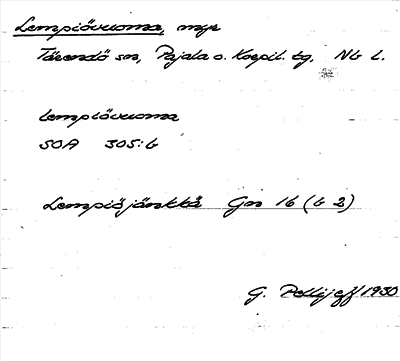 Lempiövuoma, myr
Tärendö sn, Pajala o. Korpil. tg, Nb L.
Lempiövuoma
SOA 305:6
Lempiöjänkkä Gn 16 (b 2)
G. Pellijeff 1950